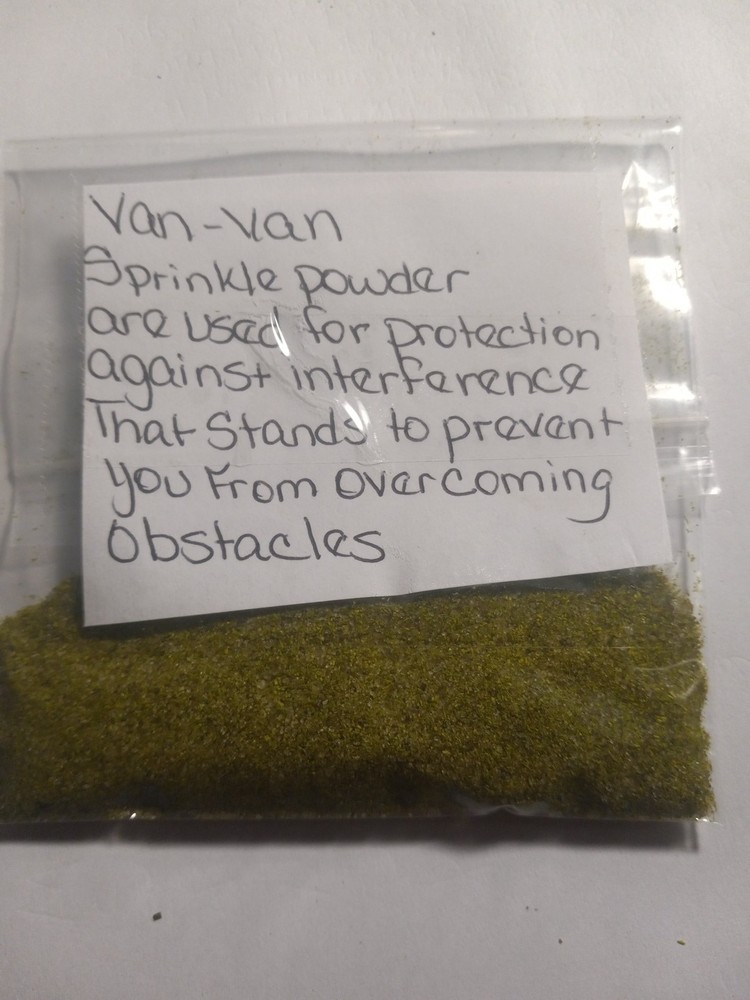 Van-van
Sprinkle powder
are used for protection
against interference
That Stands to prevent
you From overcoming
Obstacles